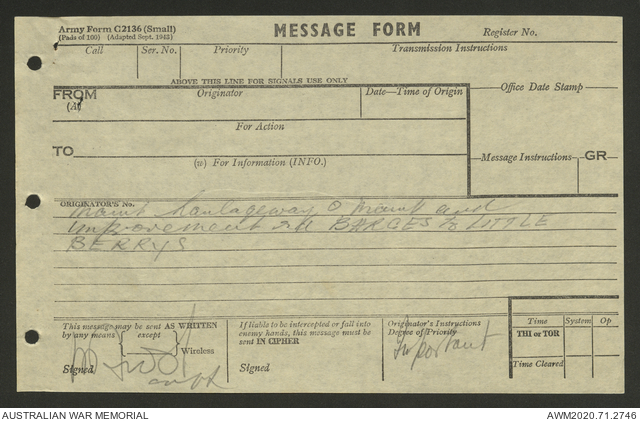 Army Form C2136 (Small)
(Pads of 100) (Adapted Sept. 1942)
MESSAGE FORM
Register No.
Call
Ser. No.
Priority
Transmission Instructions
ABOVE THIS LINE FOR SIGNALS USE ONLY
FROM
(A)
Originator
Date—Time of Origin
Office Date Stamp
For Action
TO
(w) For Information (INFO.)
Message Instructions
GR
ORIGINATOR'S No.
and
improvement BARGES to LITTLE
BERRYS
This message may be sent AS WRITTEN
by any means
except
Wireless
Signed
If liable to be intercepted or fall into
enemy hands, this message must be
sent IN CIPHER
Signed
Originator's Instructions
Degree of Priority
Important
Time
System
Op
THI or TOR
Time Cleared
AUSTRALIAN WAR MEMORIAL
AWM2020.71.2746